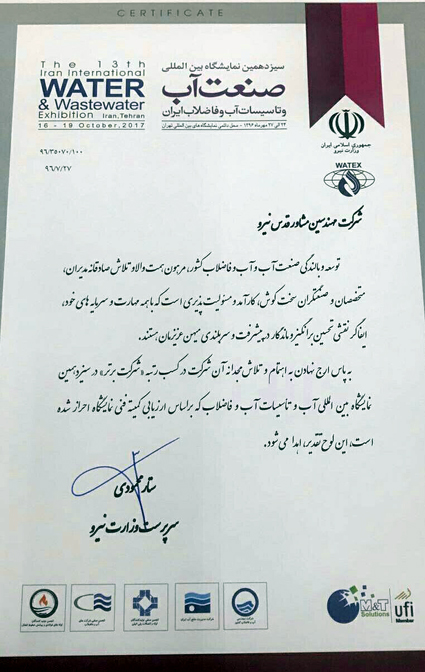 CERTIFICATE
The 13th
Iran International
WATER
& Wastewater
Exhibition Iran,Tehran
16 - 19 October, 2017
سیزدهمین نمایشگاه بین المللی
صنعت آب
و تاسیسات آب و فاضلاب ایران
۲۴ الی ۲۷ مهرماه ۱۳۹۶ - محل دائمی نمایشگاه های بین المللی تهران
جمهوری اسلامی ایران
وزارت نیرو
WATEX
۹۶/۳۵۰۷۰/۱۰۰
۹۶/۷/۲۷
شرکت مهندسین مشاور قدس نیرو
توسعه و بالندگی صنعت آب و آب و فاضلاب کشور، مرهون همت والا و تلاش صادقانه مدیران،
متخصصان و صنعتگران سخت کوش، کارآمد و مسئولیت پذیری است که با همه مهارت و سرمایه های خود،
ایفاگر نقشی تحسین برانگیز و ماندگار در پیشرفت و سربلندی میهن عزیزمان هستند.
به پاس ارج نهادن به اهتمام و تلاش مجدانه آن شرکت در کسب رتبه «شرکت برتر» در سیزدهمین
نمایشگاه بین المللی آب و تأسیسات آب و فاضلاب که براساس ارزیابی کمیته فنی نمایشگاه احراز شده
است، این لوح تقدیر، اهدا می شود.
ستار محمودی
سرپرست وزارت نیرو
M&T
Solutions
ufi
Member